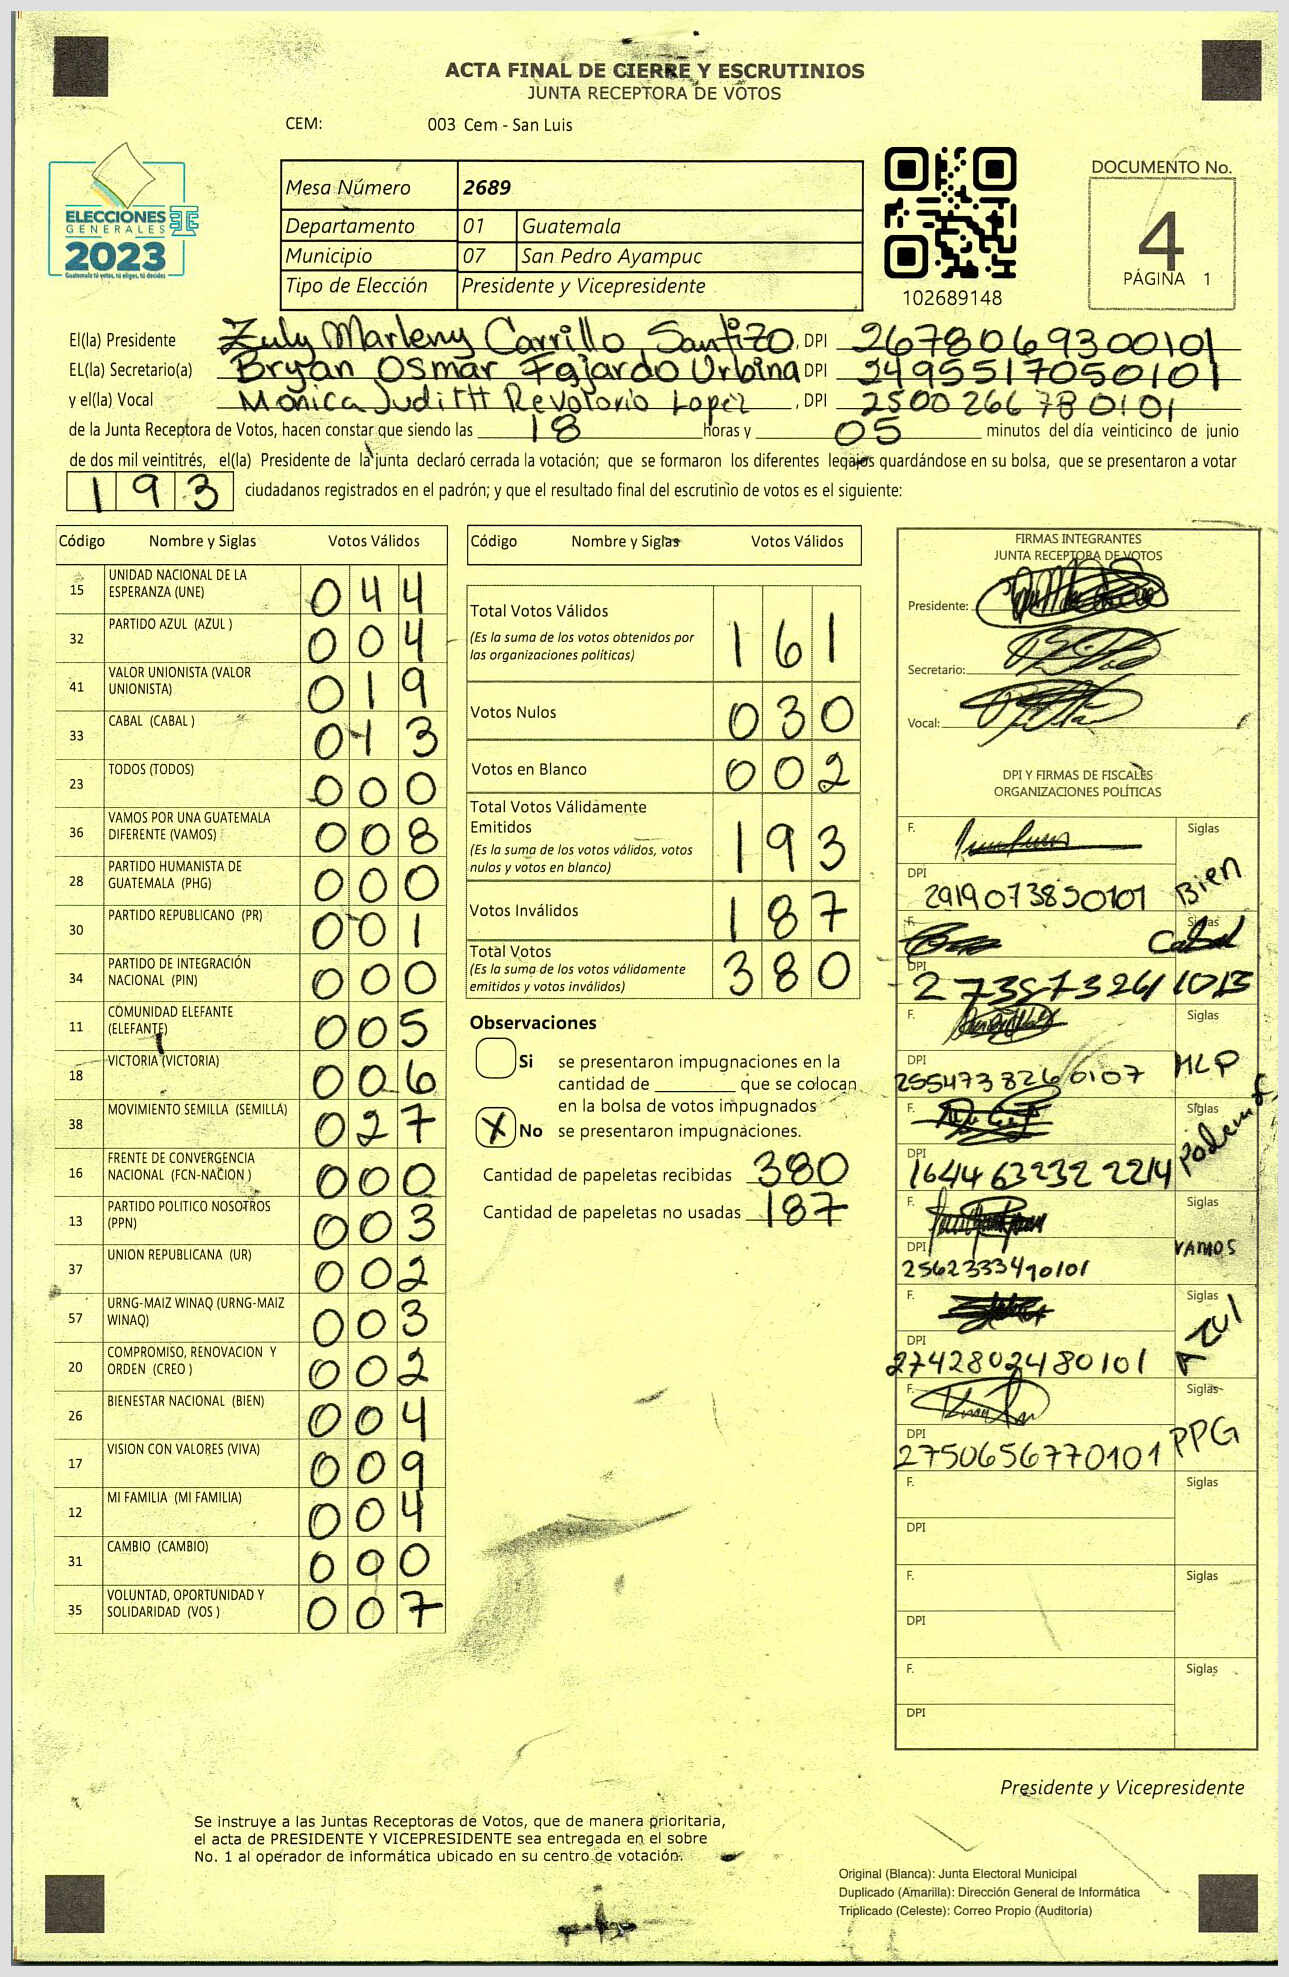 ACTA FINAL DE CIERRE Y ESCRUTINIOS
JUNTA RECEPTORA DE VOTOS
CEM: 003 Cem - San Luis
ELECCIONES
GENERALES
2023
Guatemala tú votas, tú eliges, tú decides
Mesa Número 2689
Departamento 01 Guatemala
Municipio 07 San Pedro Ayampuc
Tipo de Elección Presidente y Vicepresidente
102689148
DOCUMENTO No.
4
PÁGINA 1
El(la) Presidente Zuly Marleny Carrillo Santizo, DPI 2678069300101
EL(la) Secretario(a) Bryan Osmar Fajardo Urbina DPI 2495517050101
y el(la) Vocal Monica Judith Revolorio Lopez, DPI 2500266780101
de la Junta Receptora de Votos, hacen constar que siendo las 18 horas y 05 minutos del día veinticinco de junio
de dos mil veintitrés, el(la) Presidente de la junta declaró cerrada la votación; que se formaron los diferentes legajos guardándose en su bolsa, que se presentaron a votar
193 ciudadanos registrados en el padrón; y que el resultado final del escrutinio de votos es el siguiente:
Código Nombre y Siglas Votos Válidos
15 UNIDAD NACIONAL DE LA ESPERANZA (UNE) 044
32 PARTIDO AZUL (AZUL ) 004
41 VALOR UNIONISTA (VALOR UNIONISTA) 019
33 CABAL (CABAL ) 013
23 TODOS (TODOS) 000
36 VAMOS POR UNA GUATEMALA DIFERENTE (VAMOS) 008
28 PARTIDO HUMANISTA DE GUATEMALA (PHG) 000
30 PARTIDO REPUBLICANO (PR) 001
34 PARTIDO DE INTEGRACIÓN NACIONAL (PIN) 000
11 COMUNIDAD ELEFANTE (ELEFANTE) 005
18 VICTORIA (VICTORIA) 006
38 MOVIMIENTO SEMILLA (SEMILLA) 027
16 FRENTE DE CONVERGENCIA NACIONAL (FCN-NACION ) 000
13 PARTIDO POLITICO NOSOTROS (PPN) 003
37 UNION REPUBLICANA (UR) 002
57 URNG-MAIZ WINAQ (URNG-MAIZ WINAQ) 003
20 COMPROMISO, RENOVACION Y ORDEN (CREO ) 002
26 BIENESTAR NACIONAL (BIEN) 004
17 VISION CON VALORES (VIVA) 009
12 MI FAMILIA (MI FAMILIA) 004
31 CAMBIO (CAMBIO) 000
35 VOLUNTAD, OPORTUNIDAD Y SOLIDARIDAD (VOS ) 007
Código Nombre y Siglas Votos Válidos
Total Votos Válidos 161
(Es la suma de los votos obtenidos por
las organizaciones políticas)
Votos Nulos 030
Votos en Blanco 002
Total Votos Válidamente
Emitidos 193
(Es la suma de los votos válidos, votos
nulos y votos en blanco)
Votos Inválidos 187
Total Votos 380
(Es la suma de los votos válidamente
emitidos y votos inválidos)
Observaciones
Si se presentaron impugnaciones en la
cantidad de ________ que se colocan
en la bolsa de votos impugnados
X No se presentaron impugnaciones.
Cantidad de papeletas recibidas 380
Cantidad de papeletas no usadas 187
FIRMAS INTEGRANTES
JUNTA RECEPTORA DE VOTOS
Presidente:
Secretario:
Vocal:
DPI Y FIRMAS DE FISCALES
ORGANIZACIONES POLÍTICAS
F. Siglas
DPI 2919073850101 Bien
F. Siglas Cabal
DPI
F. Siglas
DPI 2554738260107 MLP
F. Siglas
DPI 1644632322214 Podemos
F. Siglas
DPI 2562333490101 VAMOS
F. Siglas
DPI 2742802480101 AZUL
F. Siglas
DPI 2750656770101 PPG
F. Siglas
DPI
F. Siglas
DPI
F. Siglas
DPI
Presidente y Vicepresidente
Se instruye a las Juntas Receptoras de Votos, que de manera prioritaria,
el acta de PRESIDENTE Y VICEPRESIDENTE sea entregada en el sobre
No. 1 al operador de informática ubicado en su centro de votación.
Original (Blanca): Junta Electoral Municipal
Duplicado (Amarilla): Dirección General de Informática
Triplicado (Celeste): Correo Propio (Auditoría)